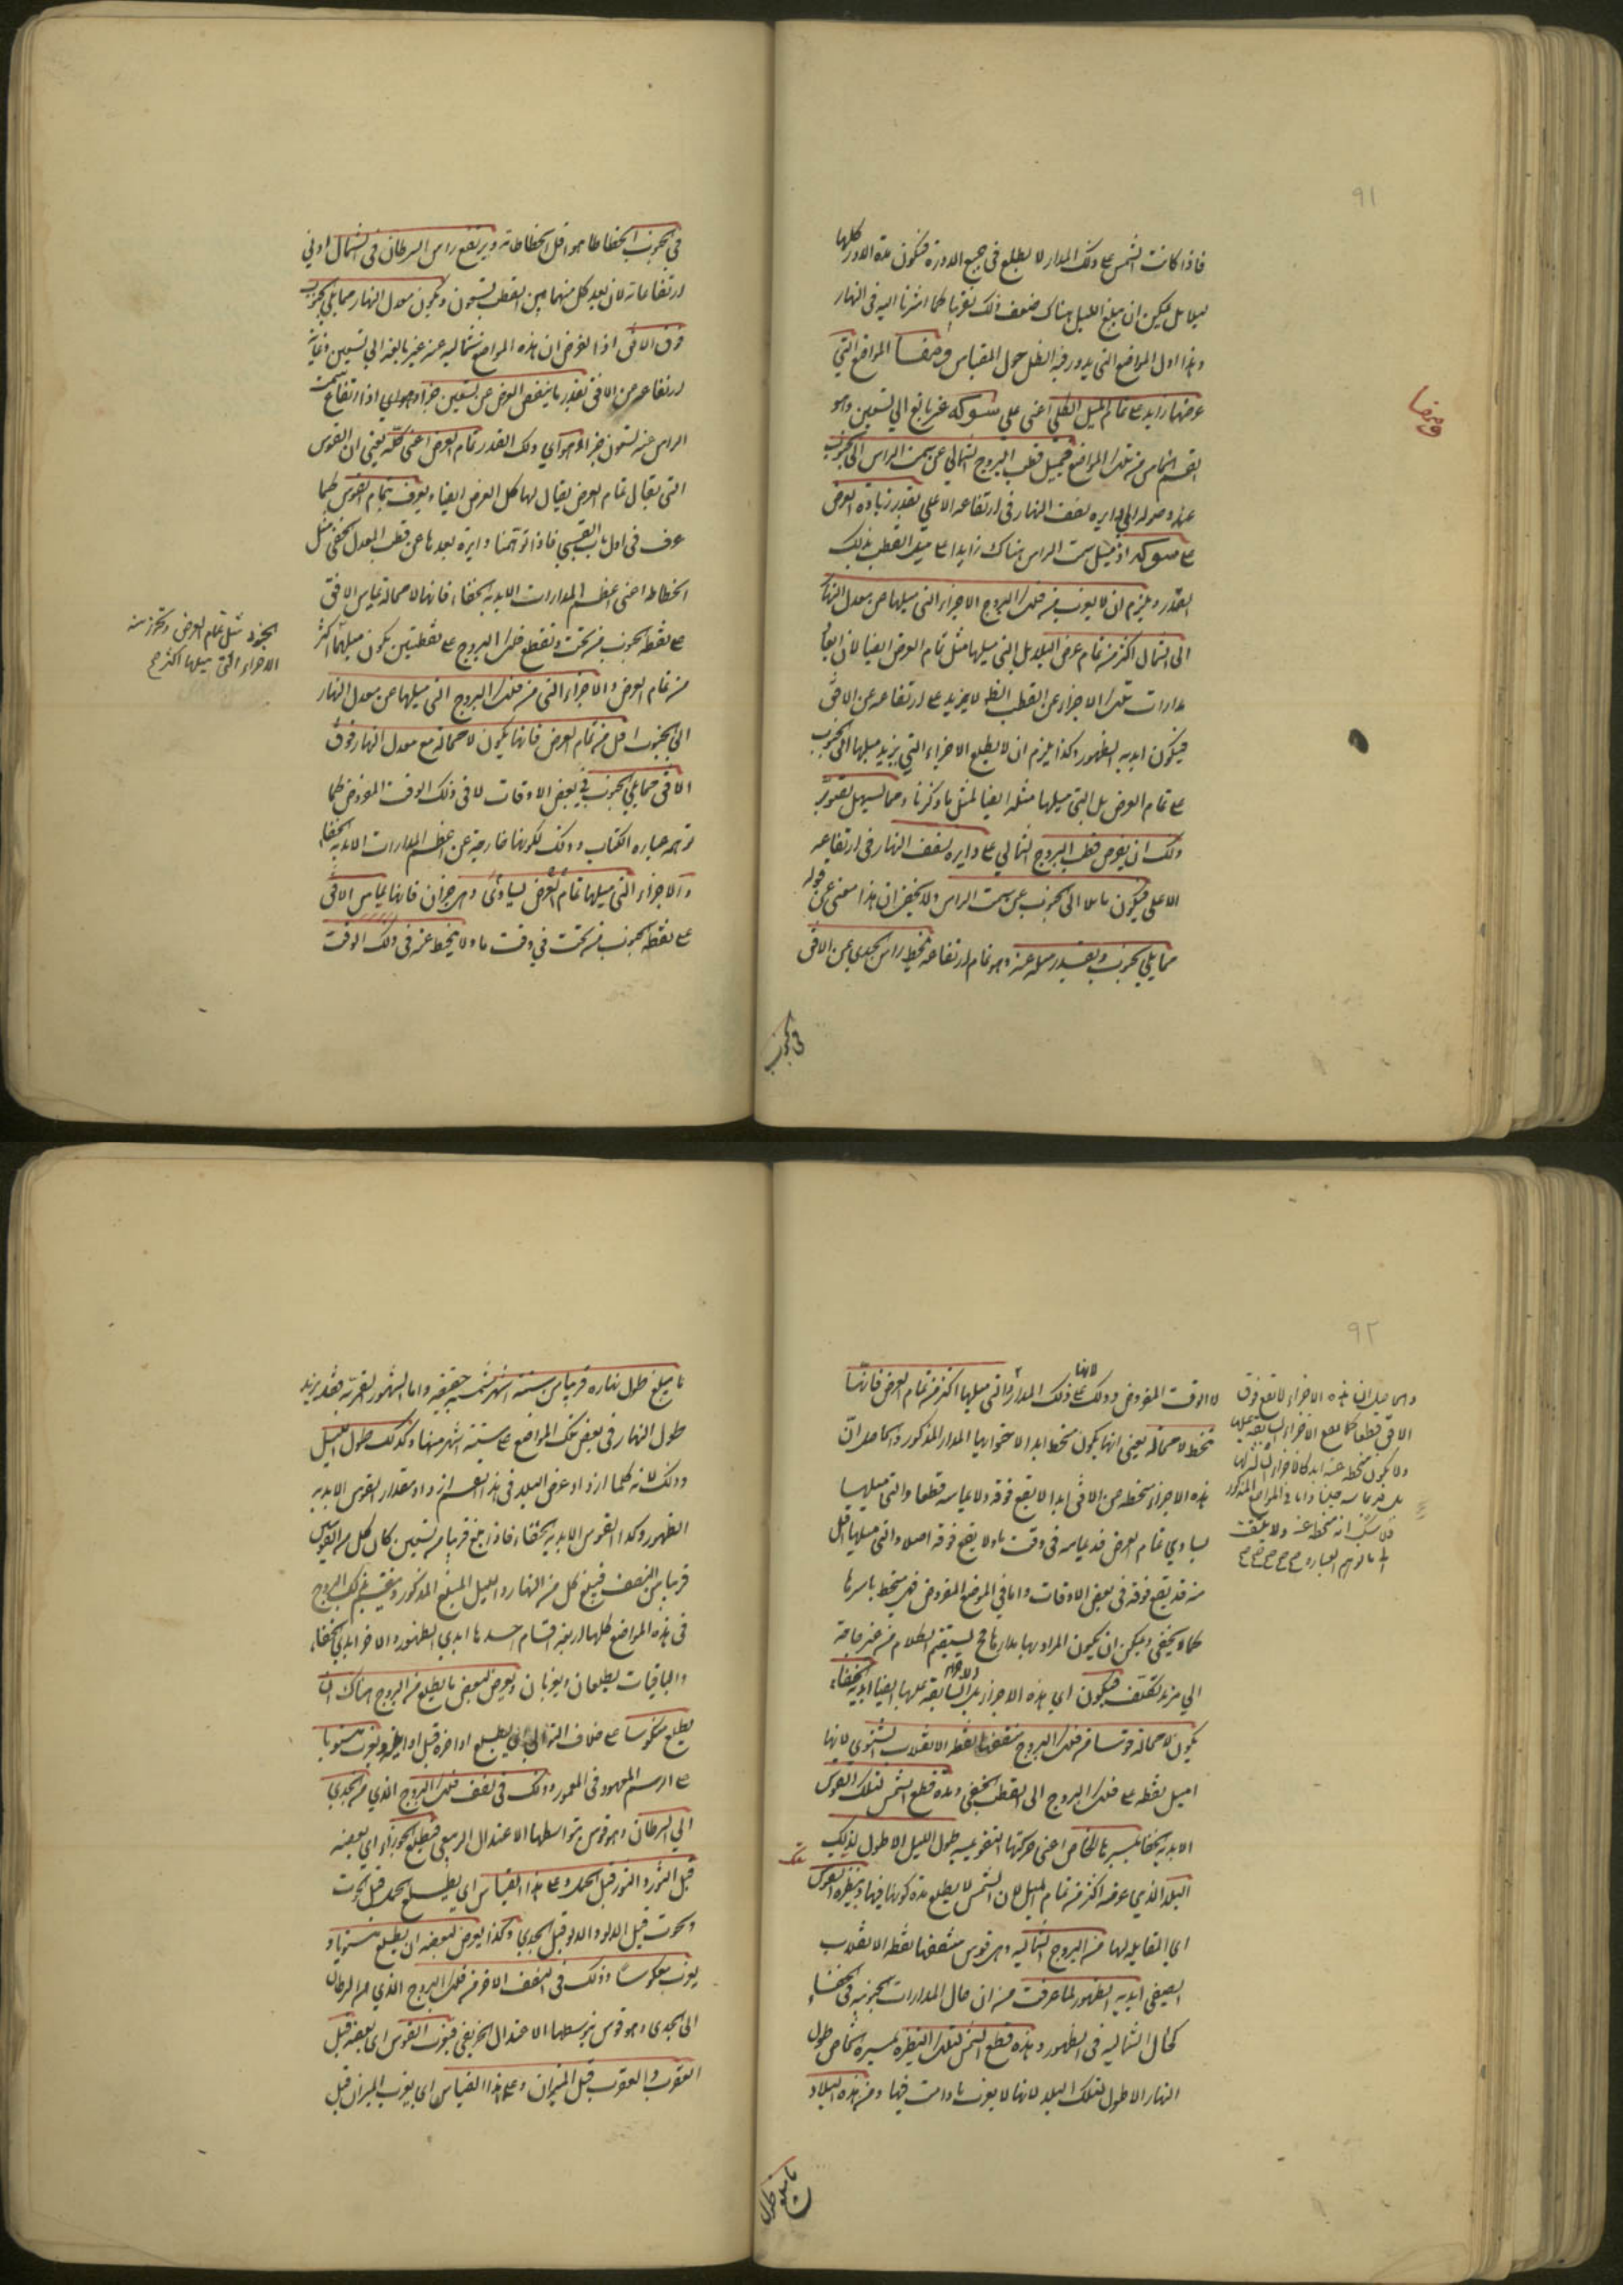 ٩١
فاذا كانت الشمس على ذلك المدار لا يطلع فى جميع الدورة فتكون مدة الدور كلها
ليلا بل يمكن ان مبلغ الليل هناك ضعف ذلك تقريبا كما اشرنا اليه فى النهار
وهذا اول المواضع التى يدور فيه الظل حول المقياس ومنها المواضع التى
عرضها زايد على تمام الميل الكلى اعنى على سو كه غير بالغ الى تسعين وهو
القسم الخامس من تلك المواضع فيميل قطب البروج الشمالى عن سمت الراس الى الجنوب
عند وصوله الى دايره نصف النهار فى ارتفاعه الاعلى بقدر زيادة العرض
على سو كه اذ ميل سمت الراس هناك زايدا على ميل القطب بذلك
القدر ويلزم ان لا يغرب من فلك البروج الاجزاء التى ميلها عن معدل النهار
الى الشمال اكثر من تمام عرض البلد بل التى ميلها مثل تمام العرض ايضا لان ابعاد
مدارات تلك الاجزاء عن القطب الظ لا يزيد على ارتفاعه عن الافق
فيكون ابديه الظهور وكذا يلزم ان لا يطلع الاجزاء التى يزيد ميلها الى الجنوب
على تمام العرض بل التى ميلها مثله ايضا لمثل ما ذكرنا ومما يسهل تصور
ذلك ان يفرض قطب البروج الشمالى على دايره نصف النهار فى ارتفاعه
الاعلى فيكون مايلا الى الجنوب عن سمت الراس ولا يخفى ان هذا مغنى عن قوله
مما يلى الجنوب وبقدر ميله عنه وهو تمام ارتفاعه ينحط راس الجدى عن الافق
فى الجنوب
ومنها
فى الجنوب انحطاطا هو اقل انحطاطاته ويرتفع راس السرطان فى الشمال ادنى
ارتفاعاته لان بعد كل منهما عن القطب تسعون ويكون معدل النهار مما يلى الجنوب
فوق الافق اذ الغرض ان هذه المواضع شماليه عرضه غير بالغه الى تسعين وغاية
ارتفاعه من الافق بقدر ما ينقص العرض عن تسعين جزاء وهواى اذ ارتفاع سمت
الراس عنه تسعون جزاء وهواى ذلك القدر تمام العرض اعنى كله يعنى ان القوس
التى يقال تمام العرض يقال لها كل العرض ايضا ويعرف بتمام القوس كما
عرف فى اول باب القسى فاذا توهمنا دايرة بعدها عن قطب المعدل الخفى مثل
انحطاطه اعنى اعظم المدارات الابديه الخفاء فانها لا محالة يماس الافق
على نقطه الجنوب من تحت ويقطع فلك البروج على نقطتين يكون ميلهما اكثر
من تمام العرض والاجزاء التى من فلك البروج التى ميلها عن معدل النهار
الى الجنوب اقل من تمام العرض فانها يكون لا محالة مع معدل النهار فوق
الافق مما يلى الجنوب فى بعض الاوقات لا فى ذلك الوقت المفروض كما
توهمه عبارة الكتاب وذلك لكونها خارجة عن اعظم المدارات الابديه الخفاء
والاجزاء التى ميلها تمام العرض يساوى وهى جزان فانها يماس الافق
على نقطه الجنوب من تحت فى وقت ما ولا ينحط عنه فى ذلك الوقت
الاجزاء التى ميلها اكثر ح
٩٢
لا الوقت المفروض وذلك لانها على ذلك المدار والتى ميلها اكثر من تمام العرض فانها
تنحط لا محالة يعنى انها يكون منحط ابدا لاحتوا بها المدار المذكور والحاصل ان
هذه الاجزاء منحطه عن الافق ابدا لا يقع فوقه ولا يماسه قطعا والتى ميلها
يساوى تمام العرض قد يماسه فى وقت ما ولا يقع فوقه اصلا والتى ميلها اقل
منه قد يقع فوقه فى بعض الاوقات واما فى الموضع المفروض فهى منحط باسرها
كما لا يخفى ويمكن ان يكون المراد بها مدارها ح ليستقيم الكلام من غير حاجة
الى مزيد تكلف فيكون اى هذه الاجزاء بل والاجزاء السابقه عليها ايضا ابديه الخفاء
يكون لا محالة قوسا من فلك البروج منتصفها نقطه الانقلاب الشتوى لانها
اميل نقطه على فلك البروج الى القطب الخفى ومدة قطع الشمس لتلك القوس
الابديه الخفا بمسيرها الخاص اعنى حركتها التقويميه طول الليل الاطول لذلك
البلد الذى عرضه اكثر من تمام الميل لان الشمس لا يطلع مدة كونها فيها ونظيره القوس
اى المقابله لها من البروج الشماليه وهى قوس منتصفها نقطه الانقلاب
الصيفى ابديه الظهور لما عرفت من ان حال المدارات الجنوبيه فى الخفاء
كحال الشماليه فى الظهور ومدة قطع الشمس لتلك النظيره بمسيره الخاص طول
النهار الاطول لتلك البلد لانها لا يغرب ما دامت فيها ومن هذه البلاد
ما مبلغ طول
والحاصل ان هذه الاجزاء لا تقع فوق
الافق قطعا كما يقع الاجزاء السابقه عليها
ولا يكون منحطه عنه ابدا كالاجزاء التاليه لها
بل قد يماسه حينا واما فى المواضع المذكور
فلا شك انه منحط عنه ولا يلتفت
الى ما توهم العبارة
ما مبلغ طول نهاره قريبا من ستة اشهر شمسيه حقيقيه واما الشهور القمريه فقد يزيد
طول النهار فى بعض تلك المواضع على ستة اشهر منها وكذلك طول الليل
وذلك لانه كلما ازداد عرض البلد فى هذا القسم ازداد مقدار القوس الابديه
الظهور وكذا القوس الابديه الخفاء فاذا بلغ قريبا من تسعين كان كل من القوسين
قريبا من النصف فيبلغ كل من النهار والليل المبلغ المذكور وينقسم فلك البروج
فى هذه المواضع كلها اربعة اقسام احدها ابدى الظهور والاخر ابدى الخفاء
والباقيات يطلعان ويغربان ويعرض لبعض ما يطلع من البروج هناك ان
يطلع منكوسا على خلاف التوالى اى يطلع اواخره قبل اوايله ويغرب مستويا
على الرسم المعهود فى المعمور وذلك فى نصف فلك البروج الذى من الجدى
الى السرطان وهو قوس يتوسطها الاعتدال الربيعى فيطلع الجوزاء اى بعضه
قبل الثور والثور قبل الحمل وعلى هذا القياس اى يطلع الحمل قبل الحوت
والحوت قبل الدلو والدلو قبل الجدى وكذا يعرض لبعضه ان يطلع مستويا و
يغرب معكوسا وذلك فى النصف الاخر من فلك البروج الذى من السرطان
الى الجدى وهو قوس يتوسطها الاعتدال الخريفى فيغرب القوس اى بعضه قبل
العقرب والعقرب قبل الميزان وعلى هذا القياس اى يغرب الميزان قبل